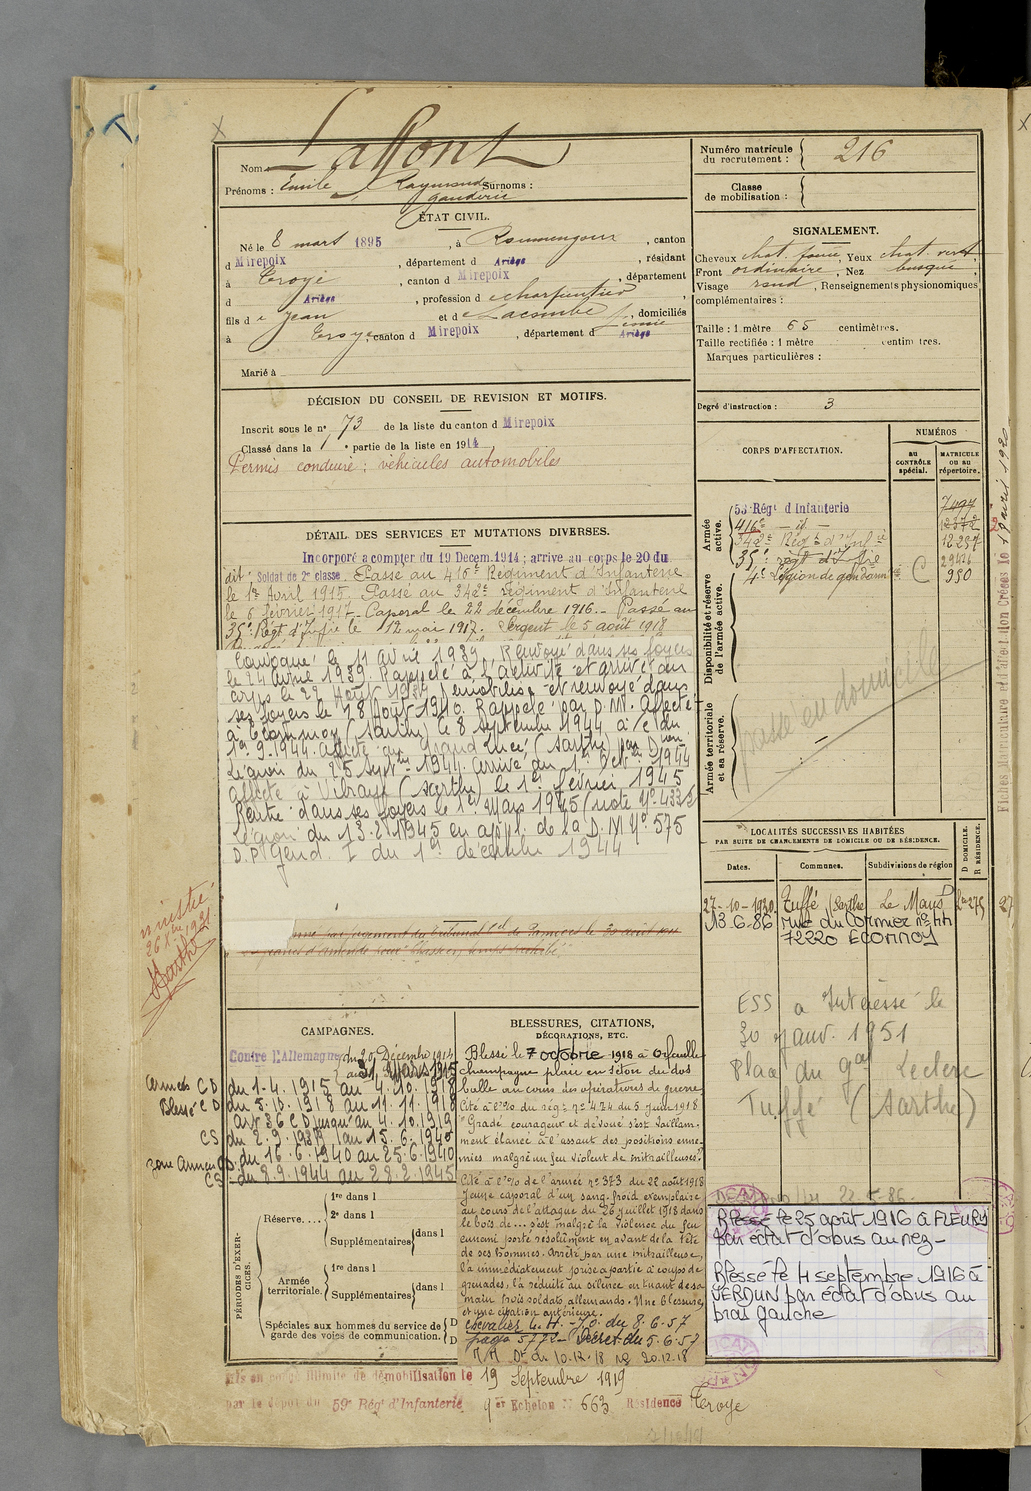 Laffont
Numéro matricule du recrutement : 216
Nom
Prénoms : Emile Raymond Surnoms :
gauderic
Classe de mobilisation :
ÉTAT CIVIL.
Né le 8 mars 1895, à Roumengoux, canton
d Mirepoix, département d Ariège, résidant
à Troye, canton d Mirepoix, département
d Ariège, profession d charpentier
fils d e Jean et d e Lacombe, domiciliés
à Troye, canton d Mirepoix, département d Ariège
Marié à
SIGNALEMENT.
Cheveux chat. foncé, Yeux chat. verd
Front ordinaire, Nez busqué,
Visage rond, Renseignements physionomiques
complémentaires :
Taille : 1 mètre 65 centimètres.
Taille rectifiée : 1 mètre centimètres.
Marques particulières :
Degré d'instruction : 3
DÉCISION DU CONSEIL DE REVISION ET MOTIFS.
Inscrit sous le n° 73 de la liste du canton d Mirepoix
Classé dans la 1e partie de la liste en 1914
Permis conduire : véhicules automobiles
CORPS D'AFFECTATION.
NUMÉROS
au CONTRÔLE spécial.
MATRICULE OU AU répertoire.
Armée active.
53 Régt d Infanterie 7497
416e — id — 12372
342e Régt d'Infie 12237
35e régt d'Infie 29426
4e Légion de gendarmie C 990
Disponibilité et réserve de l'armée active.
Armée territoriale et sa réserve.
passé en domicile
DÉTAIL DES SERVICES ET MUTATIONS DIVERSES.
Incorporé a compter du 19 Decem.1914 ; arrivé au corps le 20 du
dit. Soldat de 2e classe. Passé au 416e Régiment d'Infanterie
le 1er Avril 1915. Passé au 342e régiment d'Infanterie
le 6 février 1917. Caporal le 22 décembre 1916. Passé au
35e Régt d'Infie le 12 mai 1917. Sergent le 5 août 1918
Convoqué le 11 avril 1939. Renvoyé dans ses foyers
le 24 avril 1939. Rappelé à l'activité et arrivé au
corps le 22 Août 1939. Démobilisé et renvoyé dans
ses foyers le 28 Août 1940. Rappelé par D.M. Affecté
à Ecommoy (Sarthe) le 8 septembre 1944 à /c du
1er.9.1944. Affecté au Grand Lucé (Sarthe) par Don
Légion du 25 septbre 1944. Arrivé du 1er Octbre 1944
Affecté à Vibraye (Sarthe) le 1er février 1945
Rentré dans ses foyers le 1er Mars 1945 (note N° 433/2
Légion du 13.2.1945 en appl. de la D.M N° 575
D.P/Gend. I du 1er décembre 1944
LOCALITÉS SUCCESSIVES HABITÉES
PAR SUITE DE CHANGEMENTS DE DOMICILE OU DE RÉSIDENCE.
Dates. Communes. Subdivisions de région
D DOMICILE. R RÉSIDENCE.
27-10-1930 Tuffé (Sarthe Le Mans D
13.6.86 rue du Cormier n° 44
72220 ECOMMOY
ESS a Intéressé le
30 janv. 1951
Place du gal Leclerc
Tuffé (Sarthe)
CAMPAGNES.
Contre l'Allemagne du 20 Décembre 1914
au 31 Mars 1915
CD du 1-4.1915 au 4.10.1918
Blessé CD du 5.10.1918 au 11.11.1918
art 36 CD jusqu'au 4.10.1919
CS du 2.9.1939 au 15.6.1940
zone Armées CD. du 16.6.1940 au 25.6.1940
CS. du 8.9.1944 au 28.2.1945
PÉRIODES D'EXERCICES.
Réserve....
1re dans l
2e dans l
Supplémentaires dans l
Armée territoriale.
1re dans l
Supplémentaires dans l
Spéciales aux hommes du service de garde des voies de communication. D D
BLESSURES, CITATIONS,
DÉCORATIONS, ETC.
Blessé le 7 octobre 1918 à Orfeuille
champagne plaie en séton du dos
balle au cours des opérations de guerre
Cité à l'o/o du régt n° 474 du 5 juin 1918
"Gradé courageux et dévoué s'est vaillam-
ment élancé à l'assaut des positions enne-
mies malgré un feu violent de mitrailleuses."
Cité à l'o/o de l'armée n° 373 du 22 août 1918
Jeune caporal d'un sang-froid exemplaire
au cours de l'attaque du 26 juillet 1918 dans
le bois de... s'est malgré la violence du feu
ennemi porté résolument en avant de la tête
de ses hommes. Arrêté par une mitrailleuse
l'a immédiatement prise à partie à coups de
grenades, l'a réduite au silence en tuant de sa
main trois soldats allemands. Une blessure
et une citation antérieure.
chevalier L.H. - J.O. du 8.6.57
page 5772 - Décret du 5.6.57
Blessé le 25 août 1916 à FLEURY
par éclat d'obus au nez -
Blessé le 4 septembre 1916 à
VERDUN par éclat d'obus au
bras gauche
Mis en congé illimité de démobilisation le 19 Septembre 1919
par le dépôt du 59e Rég d'Infanterie 9er Echelon N° 663 Résidence Troye